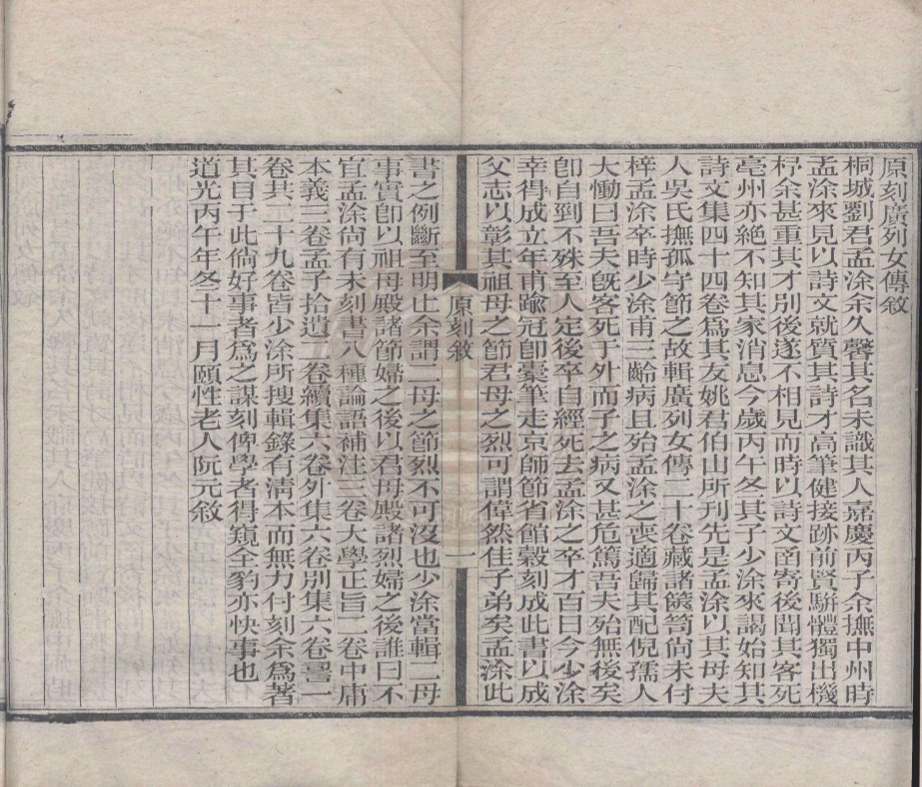 原刻廣列女傳敘
桐城劉君孟涂余久馨其名未識其人嘉慶丙子余撫中州時
孟涂來見以詩文就質其詩才高筆健接跡前賢駢體獨出機
杼余甚重其才別後遂不相見而時以詩文函寄後聞其客死
亳州亦絕不知其家消息今歲丙午冬其子少涂來謁始知其
詩文集四十四卷爲其友姚君伯山所刊先是孟涂以其母夫
人吳氏撫孤守節之故輯廣列女傳二十卷藏諸篋笥尚未付
梓孟涂卒時少涂甫三齡病且殆孟涂之喪適歸其配倪孺人
大慟曰吾夫旣客死于外而子之病又甚危篤吾夫殆無後矣
卽自剄不殊至人定後卒自經死去孟涂之卒才百日今少涂
幸得成立年甫踰冠卽橐筆走京師節省館穀刻成此書以成
父志以彰其祖母之節君母之烈可謂偉然佳子弟矣孟涂此
原刻敘
一
書之例斷至明止余謂二母之節烈不可沒也少涂當輯二母
事實卽以祖母殿諸節婦之後以君母殿諸烈婦之後誰曰不
宜孟涂尚有未刻書八種論語補注三卷大學正旨二卷中庸
本義三卷孟子拾遺二卷續集六卷外集六卷別集六卷

一
卷共二十九卷皆少涂所搜輯錄有清本而無力付刻余爲著
其目于此倘好事者爲之謀刻俾學者得窺全豹亦快事也
道光丙午年冬十一月頤性老人阮元敘